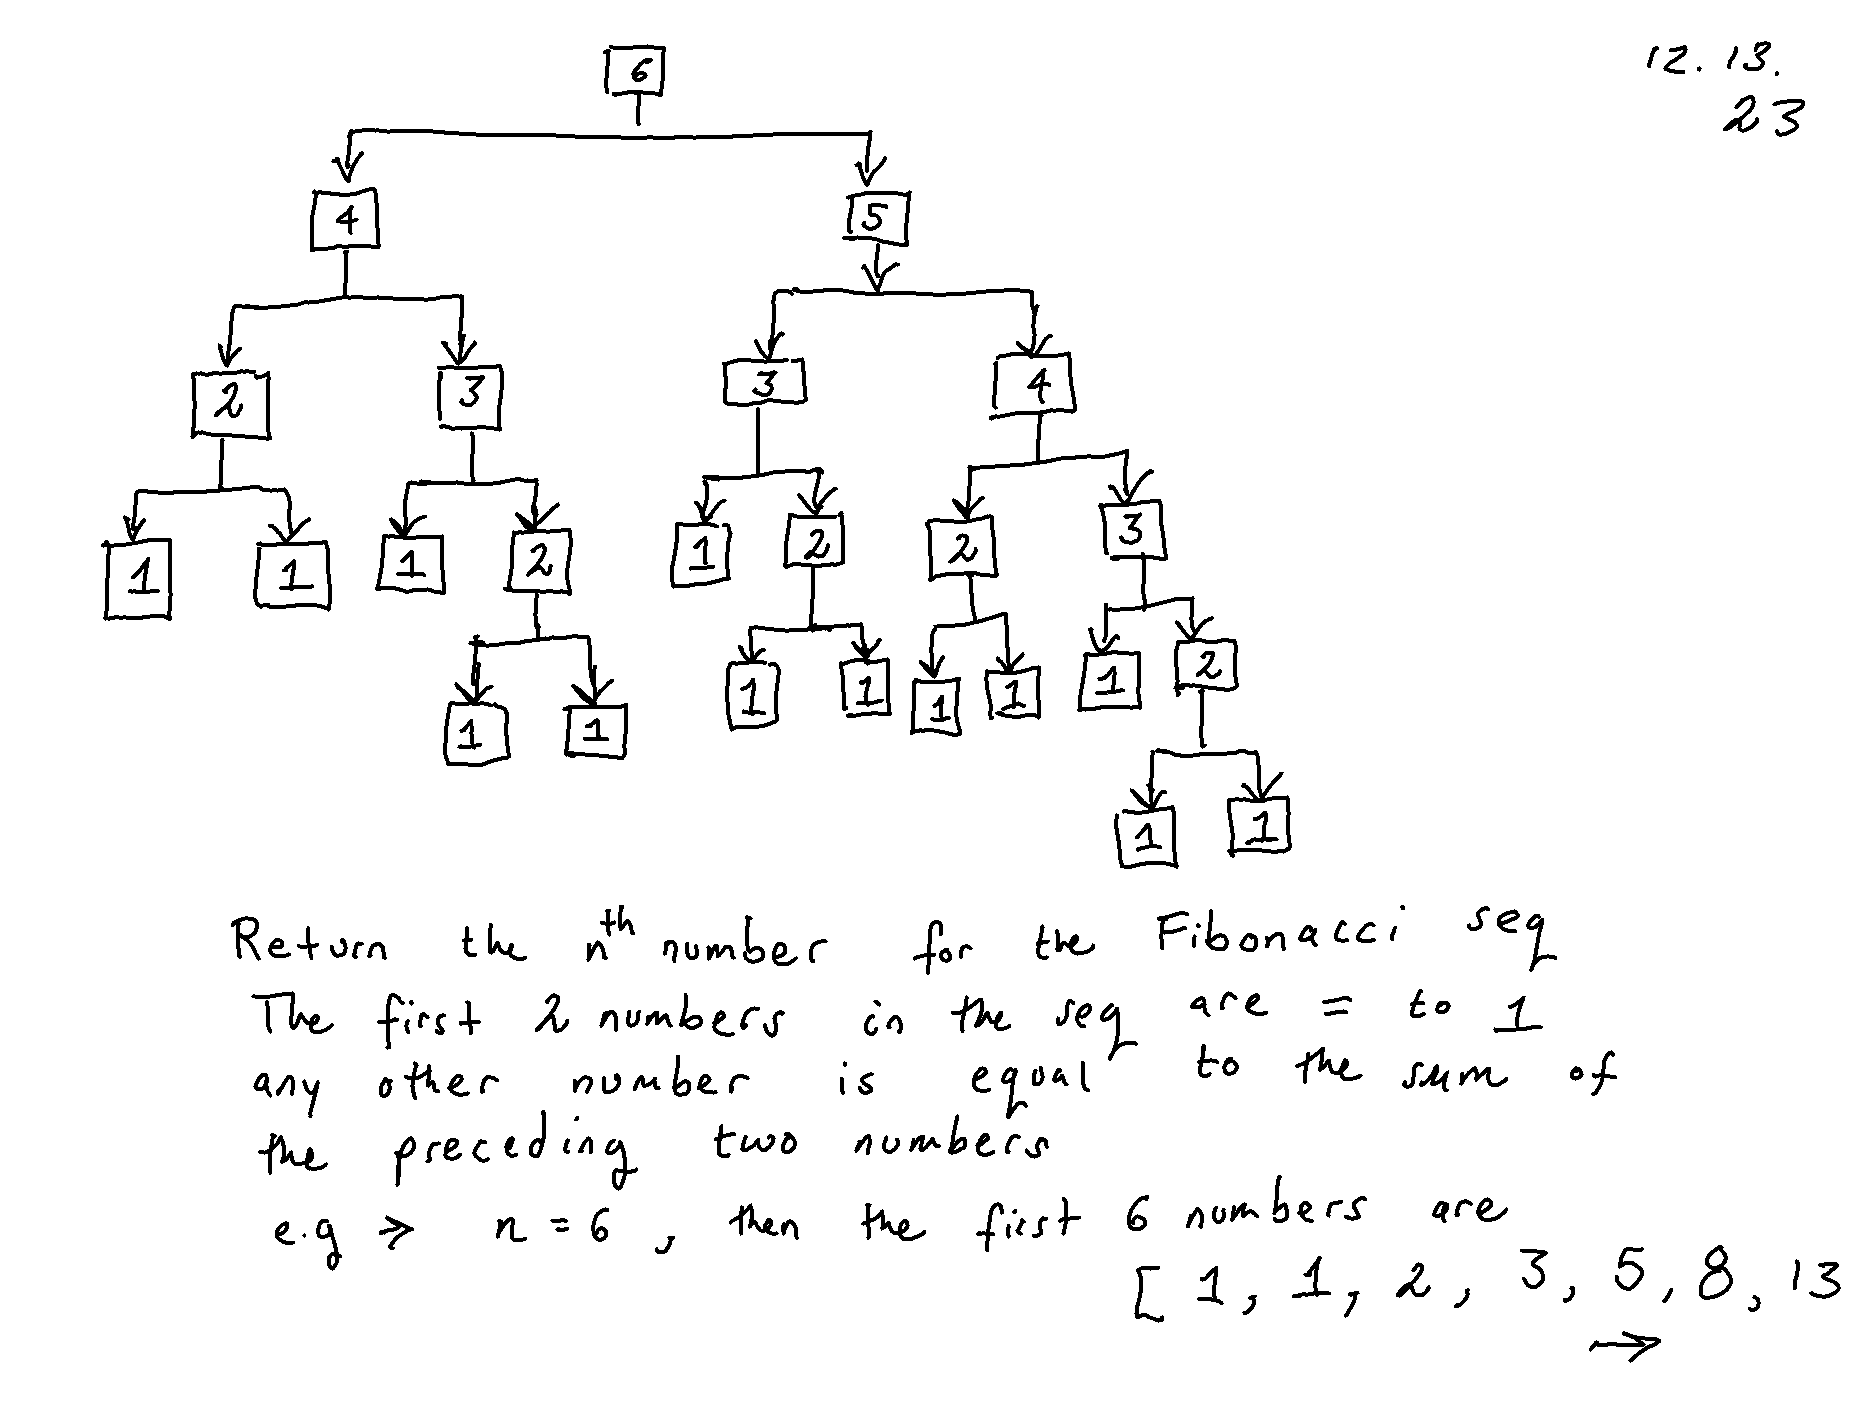 12.13.
23
6
4 5
2 3 3 4
1 1 1 2 1 2 2 3
1 1 1 1 1 1 1 2
1 1
Return the nth number for the Fibonacci seq
The first 2 numbers in the seq are = to 1
any other number is equal to the sum of
the preceding two numbers
e.g → n = 6, then the first 6 numbers are
[ 1, 1, 2, 3, 5, 8, 13
→